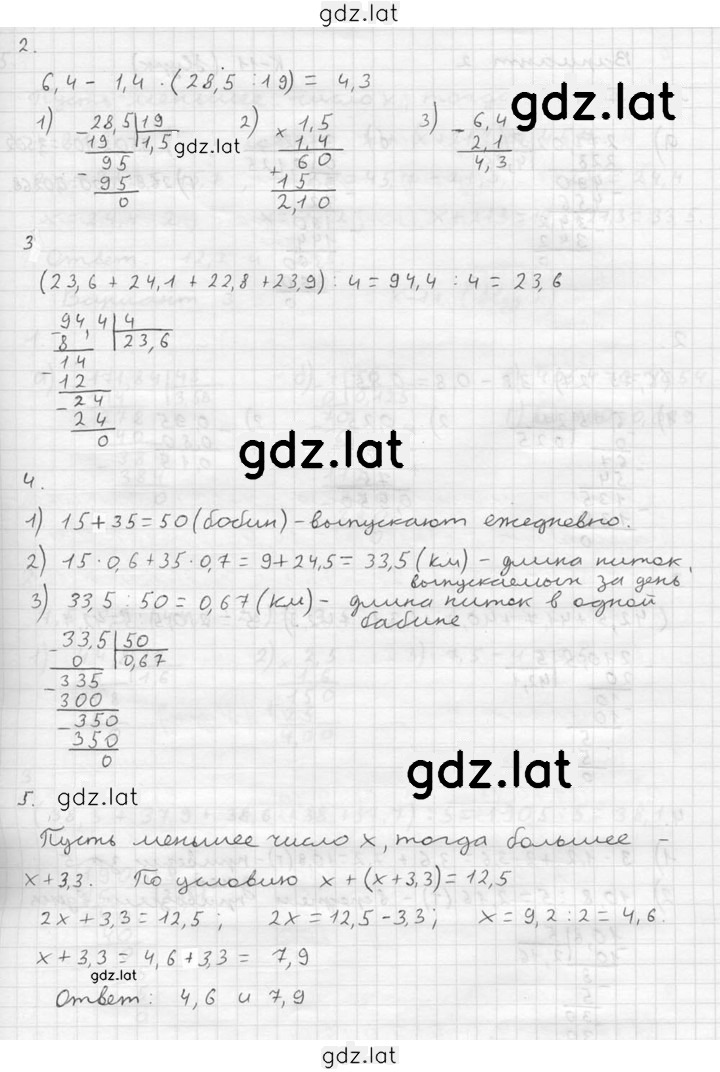 gdz.lat
2.
6,4 - 1,4 · (28,5 : 19) = 4,3
1) 28,5 | 19 2) 1,5 3) 6,4
- 19 | 1,5 × 1,4 - 2,1
95 60 4,3
- 95 + 15
0 2,10
gdz.lat
gdz.lat
3
(23,6 + 24,1 + 22,8 + 23,9) : 4 = 94,4 : 4 = 23,6
- 94,4 | 4
8 | 23,6
14
- 12
24
- 24
0
gdz.lat
4.
1) 15 + 35 = 50 (бобин) - выпускают ежедневно.
2) 15 · 0,6 + 35 · 0,7 = 9 + 24,5 = 33,5 (км) - длина ниток,
выпускаемых за день
3) 33,5 : 50 = 0,67 (км) - длина ниток в одной
бабине
- 33,5 | 50
0 | 0,67
- 335
300
- 350
350
0
gdz.lat
5. gdz.lat
Пусть меньшее число x, тогда большее -
x + 3,3. По условию x + (x + 3,3) = 12,5
2x + 3,3 = 12,5 ; 2x = 12,5 - 3,3 ; x = 9,2 : 2 = 4,6.
x + 3,3 = 4,6 + 3,3 = 7,9
gdz.lat
Ответ: 4,6 и 7,9
gdz.lat